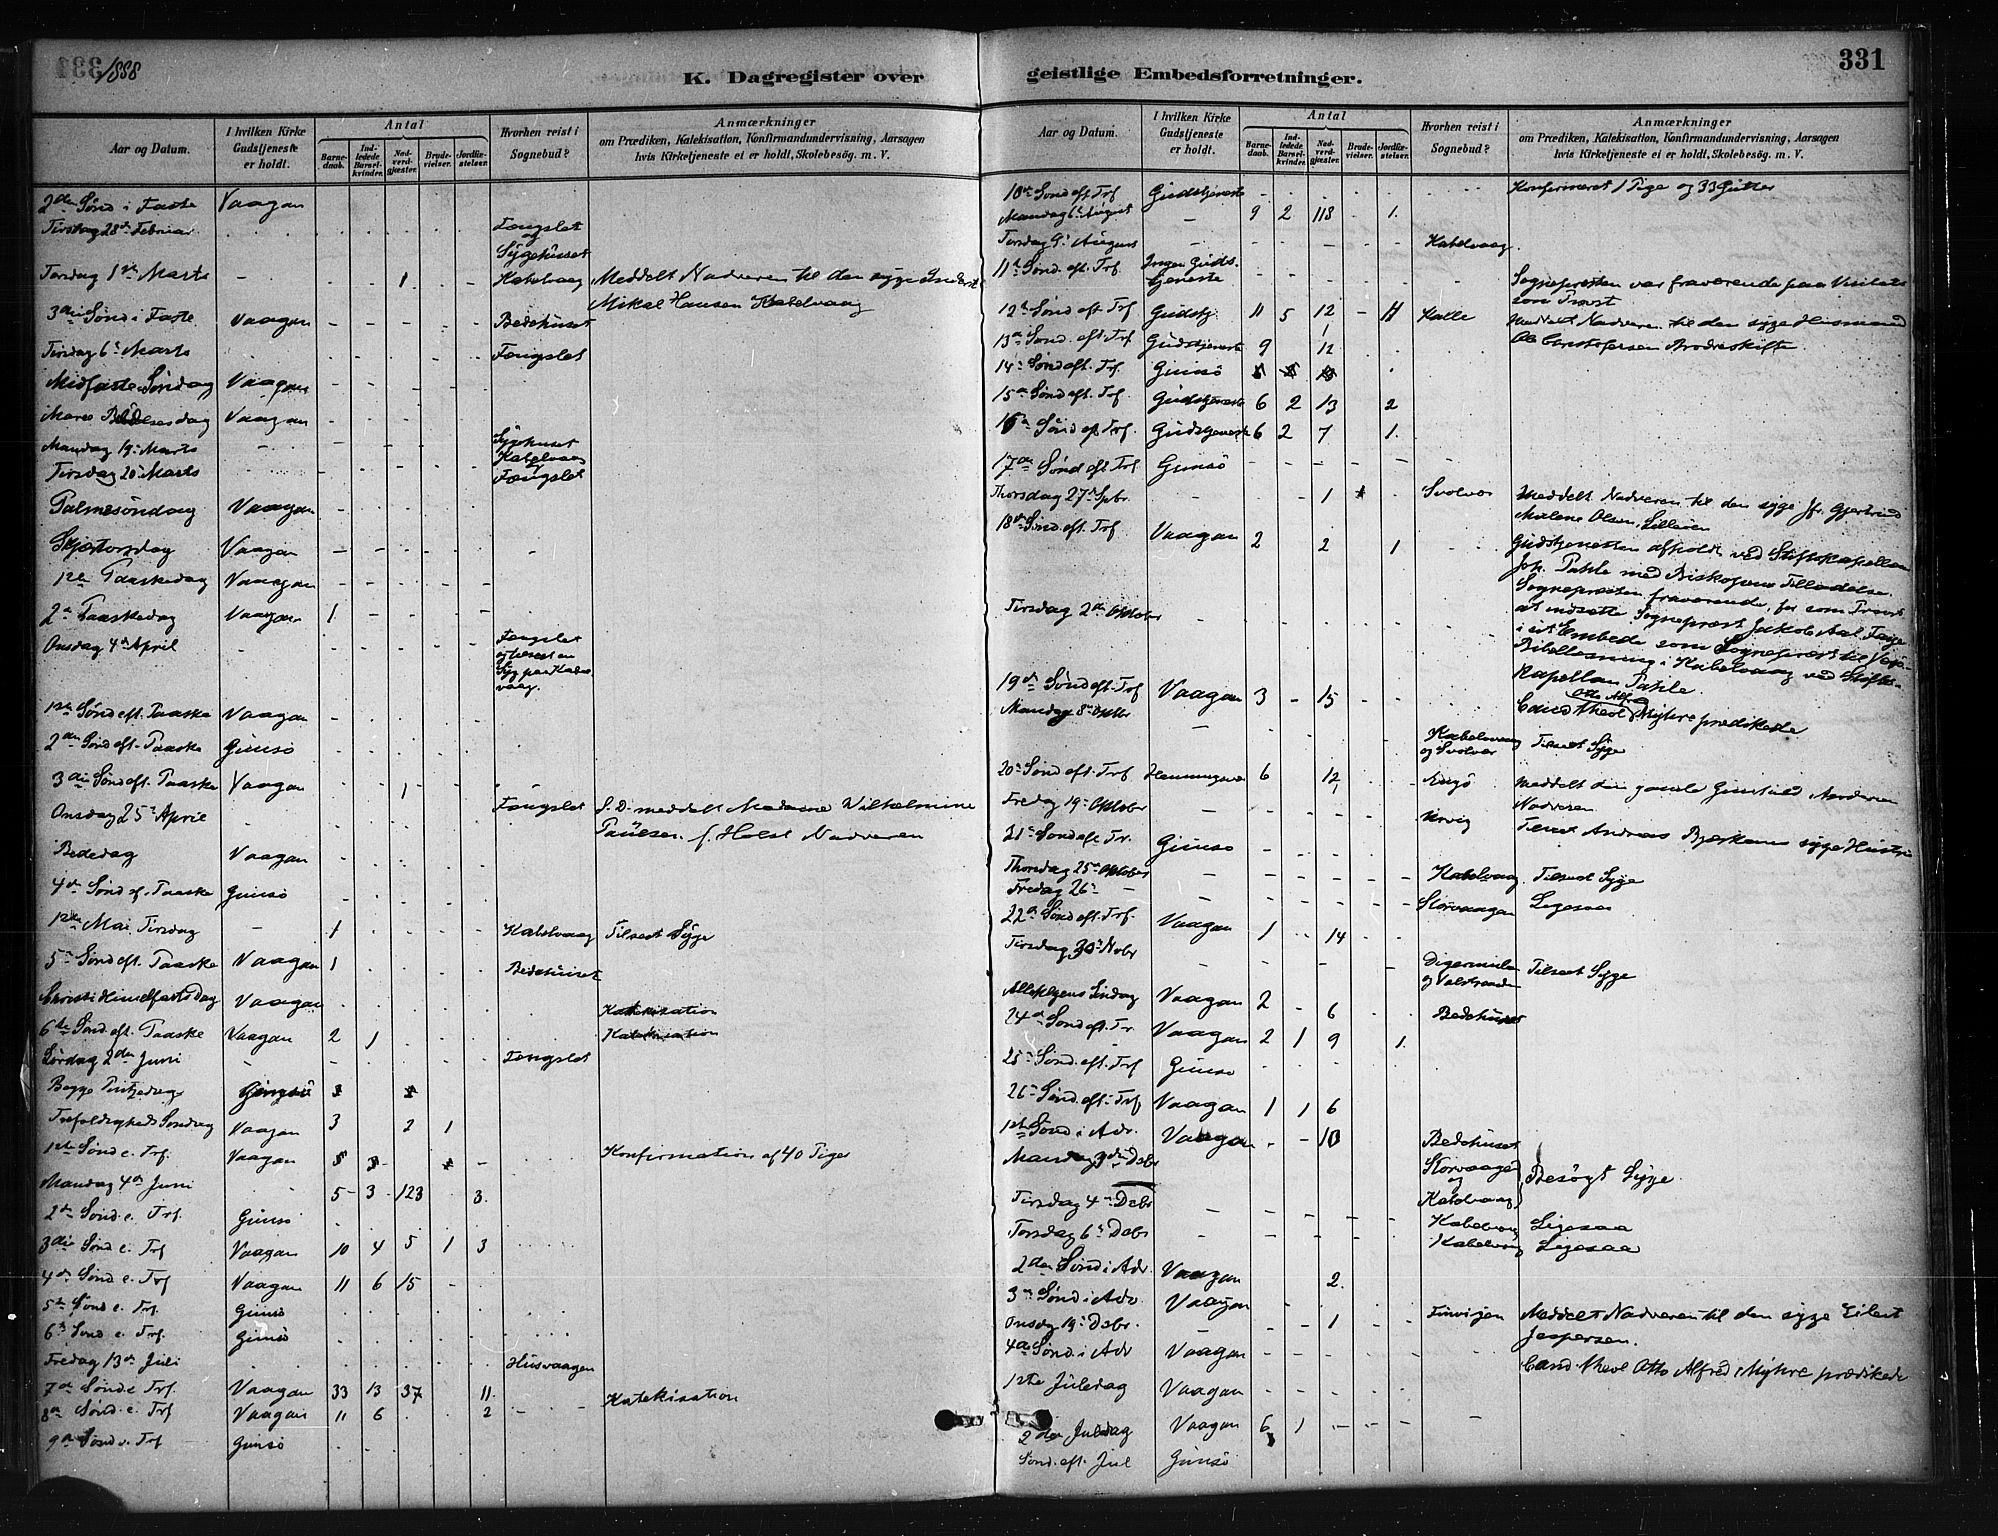 1888
K. Dagregister over geistlige Embedsforretninger.
331
Aar og Datum. I hvilken Kirke Gudstjeneste er holdt. Antal Barnedaab. Indledede Barselkvinder. Nadverdgjæster. Brudevielser. Jordfæstelser. Hvorhen reist i Sognebud? Anmærkninger om Prædiken, Katekisation, Konfirmandundervisning, Aarsagen hvis Kirketjeneste ei er holdt, Skolebesøg. m. V.
2den Sønd i Faste Vaagan
Tirsdag 28de Februar Fængslet og Sygehuset
Torsdag 1ste Marts - 1 Kabelvaag Meddelt Nadveren til den syge
Mikal Hansen Kabelvaag
3die Sønd i Faste Vaagan Bedehuset
Tirsdag 6te Marts Fængslet
Midfaste Søndag Vaagan
Marie Bebudelsesdag Vaagan
Mandag 19de Marts Sygehuset Kabelvaag
Tirsdag 20de Marts Fængslet
Palmesøndag Vaagan
Skjærtorsdag Vaagan
1ste Paaskedag Vaagan
2den Paaskedag Vaagan 1
Onsdag 4de April - Fængslet
1ste Sønd eft. Paaske Vaagan
2den Sønd eft. Paaske Gimsø
3die Sønd eft. Paaske Vaagan 1
Onsdag 25de April - Fængslet S. D. meddelt Madame Wilhelmine
Paulsen f. Holst Nadveren
Bededag Vaagan
4de Sønd ef. Paaske Gimsø
1ste Mai Tirsdag - 1 Kabelvaag Tilseet Syge
5te Sønd eft. Paaske Vaagan 1 Bedehuset
Christi Himmelfartsdag Vaagan Katekisation
6te Sønd. eft. Paaske Vaagan 2 1 Katekisation
Lørdag 2den Juni - Fængslet
Begge Pintsedage Gimsø
Trefoldigheds Søndag Vaagan 3 2 1
1ste Sønd e. Trf. Vaagan Konfirmation af 40 Piger
Mandag 4de Juni 5 3 123 3
2den Sønd e. Trf. Gimsø
3die Sønd e. Trf Vaagan 10 4 5 1 3
4de Sønd e. Trf Vaagan 11 6 15
5te Sønd e. Trf. Gimsø
6te Sønd e. Trf. Gimsø
Fredag 13de Juli Husvaagen
7de Sønd e Trf. Vaagan 33 13 37 11 Katekisation
8de Sønd e. Trf Vaagan 11 6 2
9de Sønd e. Trf Gimsø
Aar og Datum. I hvilken Kirke Gudstjeneste er holdt. Antal Barnedaab. Indledede Barselkvinder. Nadverdgjæster. Brudevielser. Jordfæstelser. Hvorhen reist i Sognebud? Anmærkninger om Prædiken, Katekisation, Konfirmandundervisning, Aarsagen hvis Kirketjeneste ei er holdt, Skolebesøg. m. V.
10de Sønd eft Trf Gudstjeneste Konfirmeret 1 Pige og 33 Gutter
Mandag 6te August - 9 2 118 1
Torsdag 9de August Kabelvaag
11te Sønd. eft. Trf. Ingen Gudstjeneste Sognepresten var fraværende paa Visitats
som Provst
12te Sønd eft Trf Gudstj. 11 5 12 Kalle Meddelt Nadveren til den syge Husmand
13de Sønd. eft. Trf Gudstjeneste 9 12
14de Sønd eft. Trf. Gimsø
15de Sønd eft. Trf. Gudstjeneste 6 2 13 2
16de Sønd eft. Trf. Gudstjeneste 6 2 7 1
17de Sønd eft. Trf Gimsø
Thorsdag 27de Spbr. - 1 Svolvær Meddelt Nadveren til den syge Jfr. Gjertrud
Malene Olsen,
18de Sønd eft. Trf. Vaagan 2 2 1 Gudstjenesten afholdt ved Stiftskapellan
Joh. Pahle med Biskopens Tilladelse.
Sognepresten fraværende, for som Provst
at indsætte Sogneprest Jakob Aal
i sit Embede som Sogneprest til
Tirsdag 2den Oktober Bibellæsning i Kabelvaag ved Stifts-
kapellan Pahle.
19de Sønd eft. Trf Vaagan 3 15 Cand. theol Otto Alfr. Myhre prædikede
Mandag 8de Oktbr - Kabelvaag og Svolvær Tilseet Syge
20de Sønd eft. Trf 6 12
Fredag 19de Oktober
Nadveren
21de Sønd eft Tr. Gimsø Tilseet Andreas syge Hustru
Thorsdag 25de Oktober - Kabelvaag Tilseet Syge
Fredag 26de - Storvaagen Ligesaa
22de Sønd eft. Trf. Vaagan 1 14
Tirsdag Digermulen Tilseet Syge
Allehelgens Søndag Vaagan 2 6 Bedehuset
24de Sønd eft. Tr. Vaagan 2 1 9 1
25de Sønd. eft. Trf Gimsø
26de Sønd. eft. Trf Vaagan 1 1 6
1ste Sønd i Adv. Vaagan 10 Bedehuset
Mandag 3die Debr Storvaagen og Kabelvaag Besøgt Syge
Tirsdag 4de Debr Kabelvaag Ligesaa
Torsdag 6te Debr Kabelvaag Ligesaa
2den Sønd i Adv. Vaagan 2
3die Sønd i Adv Vaagan
Onsdag 19de Debr. - 1 Meddelt Nadveren til den syge Eilert
Jespersen.
4de Sønd i Adv Vaagan Cand. theol Otto Alfred Myhre prædikede
1ste Juledag Vaagan
2den Juledag Vaagan 1
Sønd. eft. Jul Gimsø